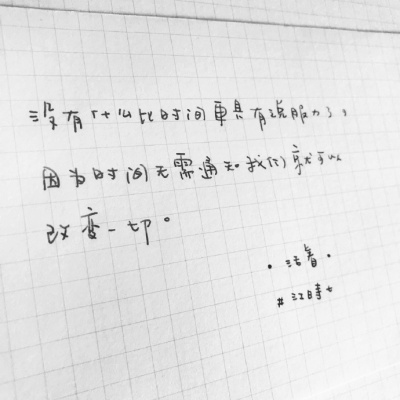 没有什么比时间更具有说服力了。
因为时间无需通知我们就可以
改变一切。
·活着·